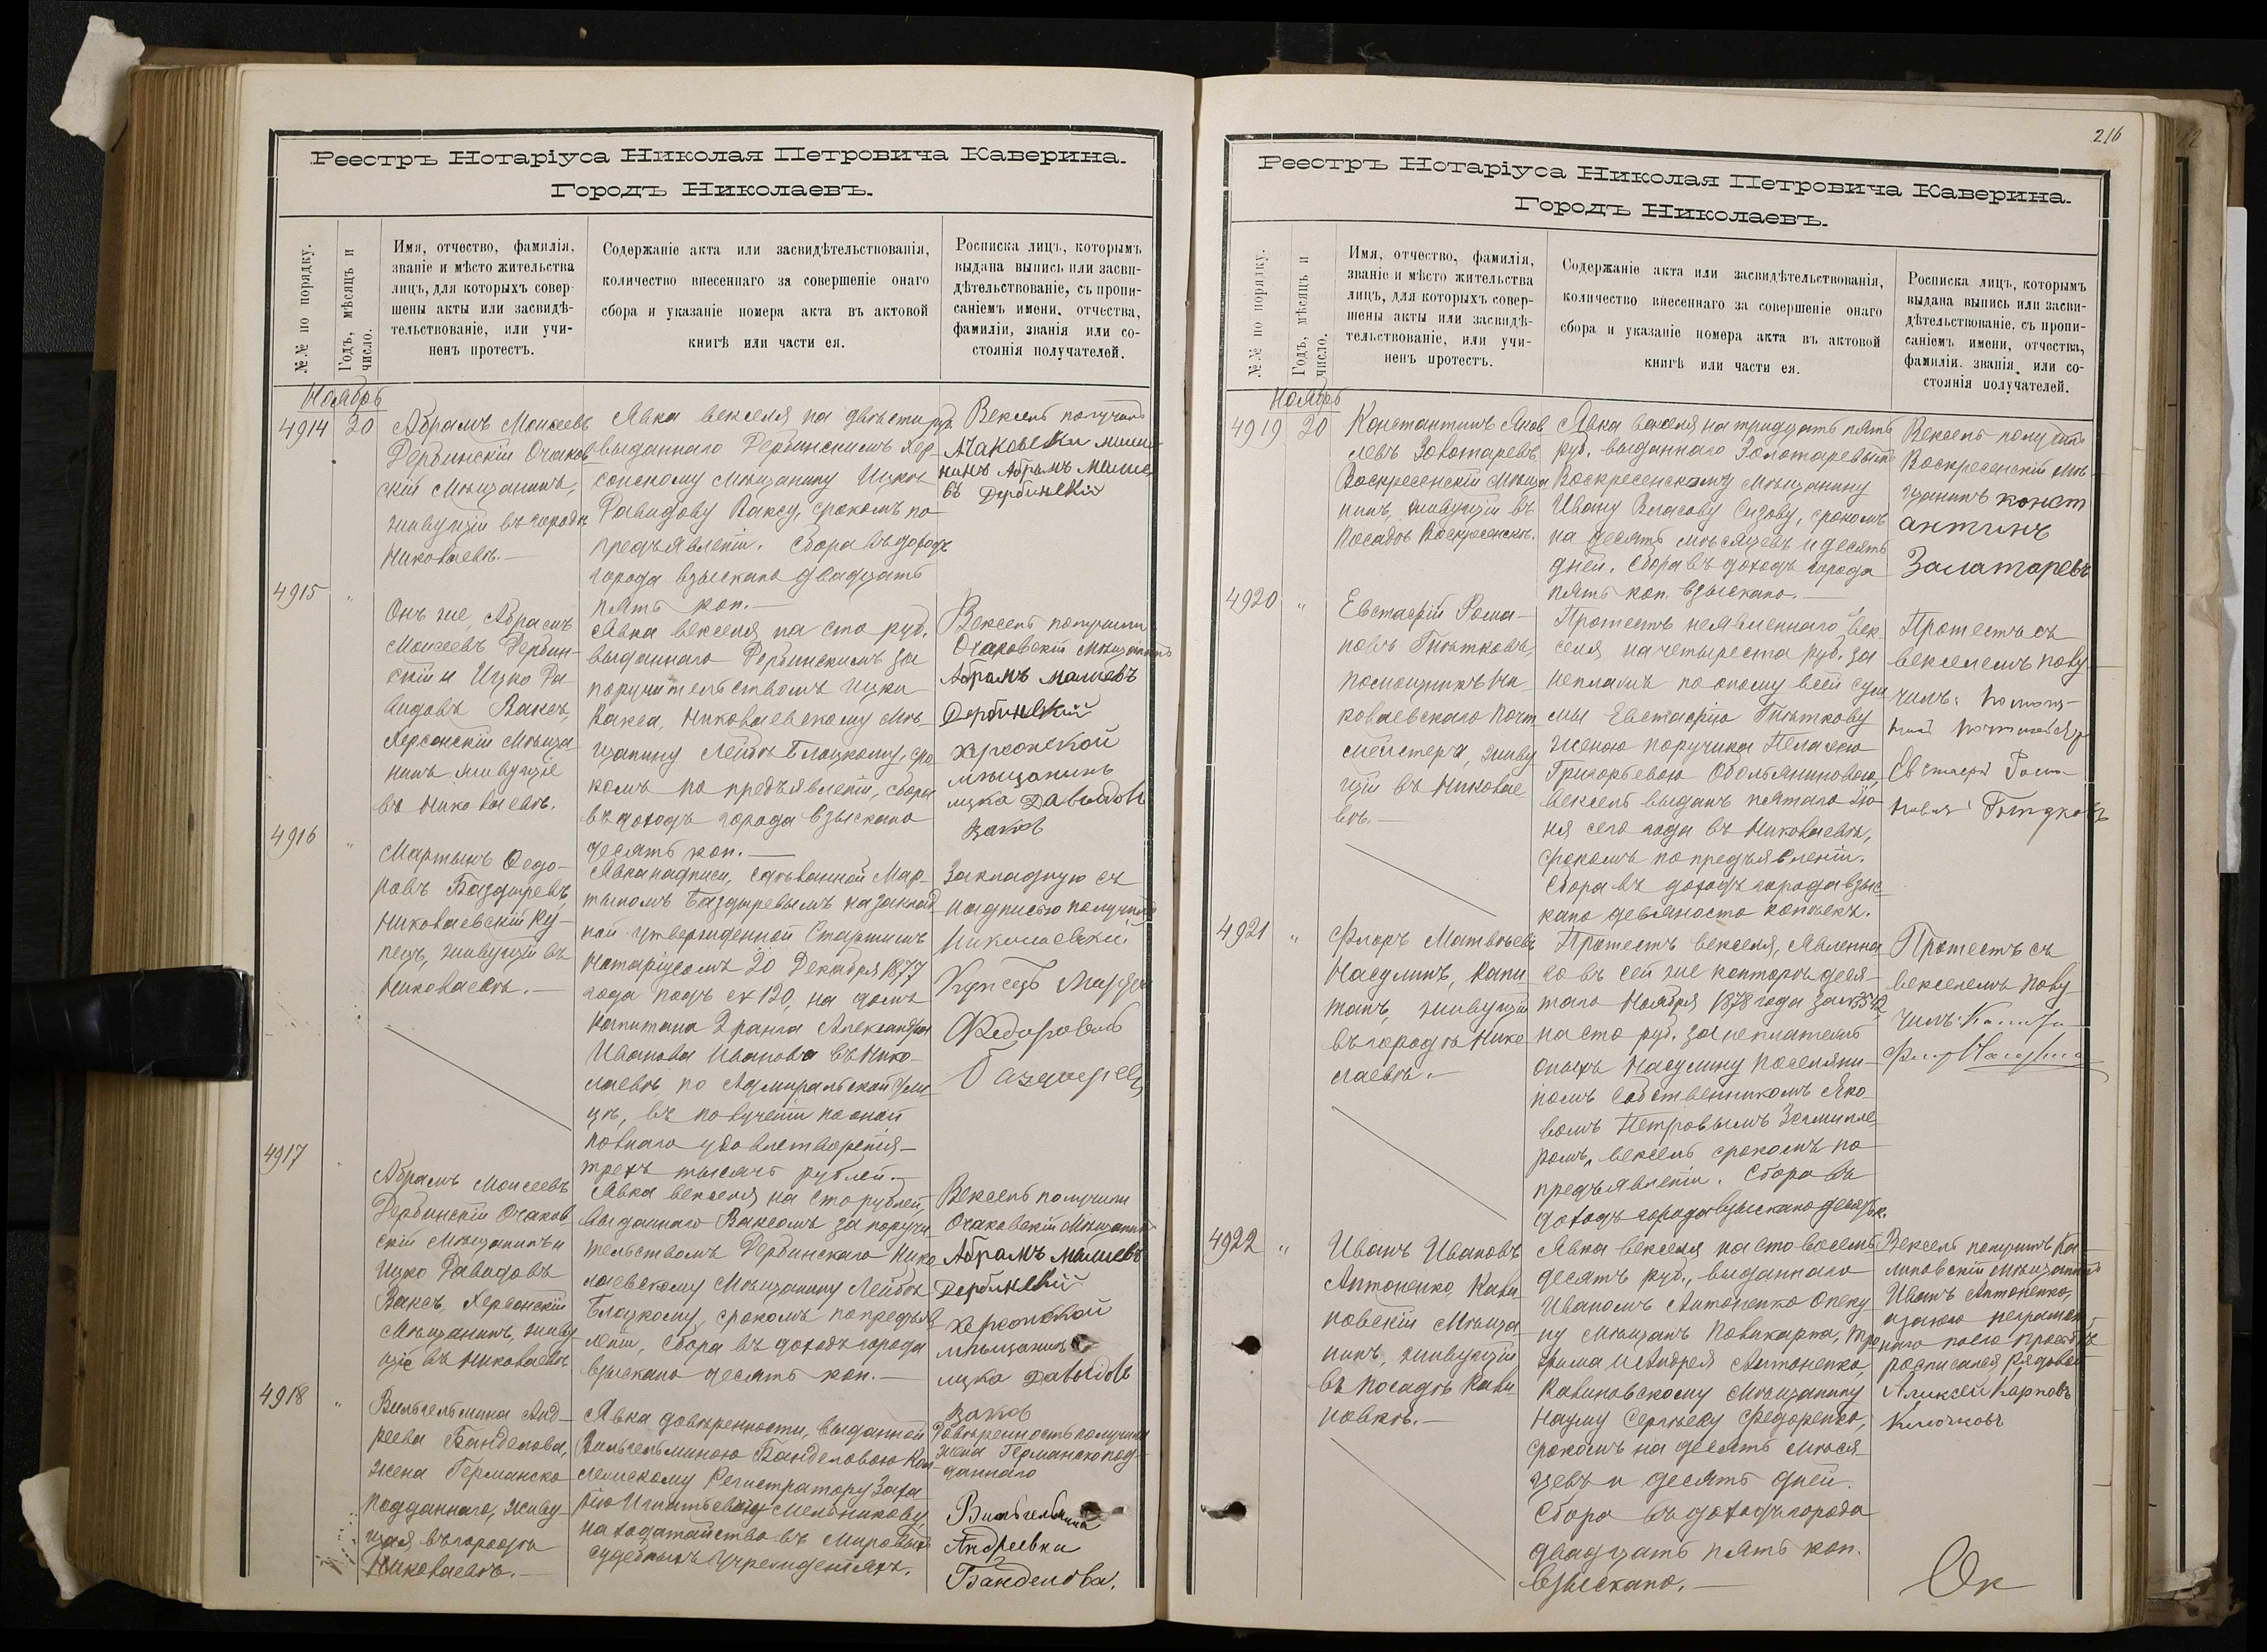 Реестръ Нотаріуса Николая Петровича Каверина.
Городъ Николаевъ.
№№ по порядку.
Годъ, мѣсяцъ и
число.
Имя, отчество, фамилія,
званіе и мѣсто жительства
лицъ, для которыхъ совер-
шены акты или засвидѣ-
тельствованіе, или учи-
ненъ протестъ.
Содержаніе акта или засвидѣтельствованія,
количество внесеннаго за совершеніе онаго
сбора и указаніе номера акта въ актовой
книгѣ или части ея.
Росписка лицъ, которымъ
выдана выпись или засви-
дѣтельствованіе, съ пропи-
саніемъ имени, отчества,
фамиліи, званія или со-
стоянія получателей.
Ноябрь
4914
20
Абрамъ Моисеевъ
Дербинскій Очаков
скій Мѣщанинъ,
живущій въ городѣ
Николаевѣ.—
Явка векселя на двѣсти руб
выданнаго Дербинскимъ Хер
сонскому Мѣщанину Ицкѣ
Давидову Ваксу, срокомъ по
предъявленіи. Сбора въ доходъ
города взыскано двадцать
пять коп.—
Вексель получилъ
Ачаковски мища
нинъ Абрамъ Маише
въ Дербинскій
4915
"
Онъ же, Абрамъ
Моисеевъ Дербин-
скій и Ицко Да
видовъ Ваксъ,
Херсонскій Мѣща
нинъ живущіе
въ Николаевѣ.
Явка векселя на сто руб.
выданнаго Дербинскимъ за
поручительствомъ Ицки
Вакса, Николаевскому Мѣ-
щанину Лейбѣ Блацкому, сро
комъ по предъявленіи, сбора
въ доходъ города взыскано
десять коп.—
Вексель получили
Очаковскій Мѣщанинъ
Абрамъ машевъ
Дербинскій
херсонской
мѣщанинъ
ицка Давыдовъ
Ваксъ
4916
"
Мартынъ Ѳедо-
ровъ Баздыревъ,
Николаевскій Ку-
пецъ, живущій въ
Николаевѣ.—
Явка надписи, сдѣланной Мар-
тыномъ Баздыревымъ на заклад
ной утвержденной Старшимъ
Нотаріусомъ 20 Декабря 1877
года подъ № 120, на домъ
Капитана 2 ранга Александра
Иванова Иванова въ Нико-
лаевѣ, по Адмиральской ули
цѣ, въ полученіи по оной
полнаго удовлетворенія—
трехъ тысячъ рублей.—
Закладную съ
надписью получилъ
Николаевскій
Купецъ Мартын
Федоровъ
Баздыревъ
4917
"
Абрамъ Моисеевъ
Дербинскій Очаков
скій Мѣщанинъ и
Ицко Давидовъ
Ваксъ, Херсонскій
Мѣщанинъ, живу
щіе въ Николаевѣ
Явка векселя на сто рублей,
выданнаго Ваксомъ за поручи
тельствомъ Дербинскаго Нико
лаевскому Мѣщанину Лейбѣ
Блацкому, срокомъ по предъяв
леніи, сбора въ доходъ города
взыскано десять коп.—
Вексель получили
Очаковскій Мѣщанинъ
Абрамъ машевъ
Дербинскій
херсонской
мѣщанинъ
ицка Давыдовъ
Ваксъ
4918
"
Вильгельмина Анд-
реева Банделова,
жена Германско
подданнаго, живу-
щая въ городѣ
Николаевѣ.—
Явка довѣренности, выданной
Вильгельминою Банделовою Кол
лежскому Регистратору Заха
рію Игнатьевичу Мельникову
на ходатайство въ Мировыхъ
судебныхъ Учрежденіяхъ.
Довѣренность получила
жена Германскопод-
даннаго
Вильгельмина
Андреевна
Банделова.
216
Реестръ Нотаріуса Николая Петровича Каверина.
Городъ Николаевъ.
№№ по порядку.
Годъ, мѣсяцъ и
число.
Имя, отчество, фамилія,
званіе и мѣсто жительства
лицъ, для которыхъ совер-
шены акты или засвидѣ-
тельствованіе, или учи-
ненъ протестъ.
Содержаніе акта или засвидѣтельствованія,
количество внесеннаго за совершеніе онаго
сбора и указаніе номера акта въ актовой
книгѣ или части ея.
Росписка лицъ, которымъ
выдана выпись или засви-
дѣтельствованіе, съ пропи-
саніемъ имени, отчества,
фамиліи, званія или со-
стоянія получателей.
Ноябрь
4919
20
Константинъ Яков
левъ Золотаревъ,
Воскресенскій Мѣща
нинъ, живущій въ
Посадѣ Воскресенскѣ.
Явка векселя на тридцать пять
руб. выданнаго Золотаревымъ
Воскресенскому Мѣщанину
Ивану Власову Сизову, срокомъ
на десять мѣсяцевъ и десять
дней. Сбора въ доходъ города
пять коп. взыскано.—
Вексель получилъ
Воскресенскій мѣ-
щанинъ конст
антинъ
Залатаревъ
4920
"
Евстафій Рома-
новъ Гнѣтковъ,
Помощникъ Ни
колаевскаго Почт
мейстера, живу
щій въ Николае
вѣ.—
Протестъ неявленнаго век
селя на четыреста руб. за
неплатежъ по оному всей сум
мы Евстафію Гнѣткову
женою поручика Пелагеею
Григорьевою Обольяниновою
вексель выданъ пятаго Ію-
ня сего года въ Николаевѣ,
срокомъ по предъявленіи.
Сбора въ доходъ города взыс-
кано девяносто копѣекъ.
Протестъ съ
векселемъ полу-
чилъ:
Евстафій Рома-
4921
"
Флоръ Матвѣевъ
Насулинъ, Капи
танъ, живущій
въ городѣ Нико
лаевѣ.—
Протестъ векселя, явленна
го въ сей же конторѣ деся-
таго Ноября 1878 года за №
на сто руб. за неплатежъ
оныхъ Насулину поселяни-
номъ собственникомъ Яко
вомъ Петровымъ
вексель срокомъ по
предъявленіи. Сбора въ
доходъ города взыскано десять к.
Протестъ съ
векселемъ полу
чилъ:
4922
"
Иванъ Ивановъ
Антоненко, Кали
новскій Мѣща
нинъ, живущій
въ посадѣ Кали
новкѣ.—
Явка векселя на сто восемь
десятъ руб., выданнаго
Иваномъ Антоненко Опеку
ну Мѣщанъ Поликарпа, Тро
фима и Андрея Антоненко,
Калиновскому Мѣщанину
Науму Сергѣеву Федоренко,
срокомъ на десять мѣся-
цевъ и десять дней.
Сбора въ доходъ города
двадцать пять коп.
взыскано.—
Вексель получилъ Ка-
линовскій мѣщанинъ
Иванъ Антоненко,
а за него неграмот-
наго по его просьбѣ
росписался рядовой
Аликсѣй Карповъ
Клочковъ